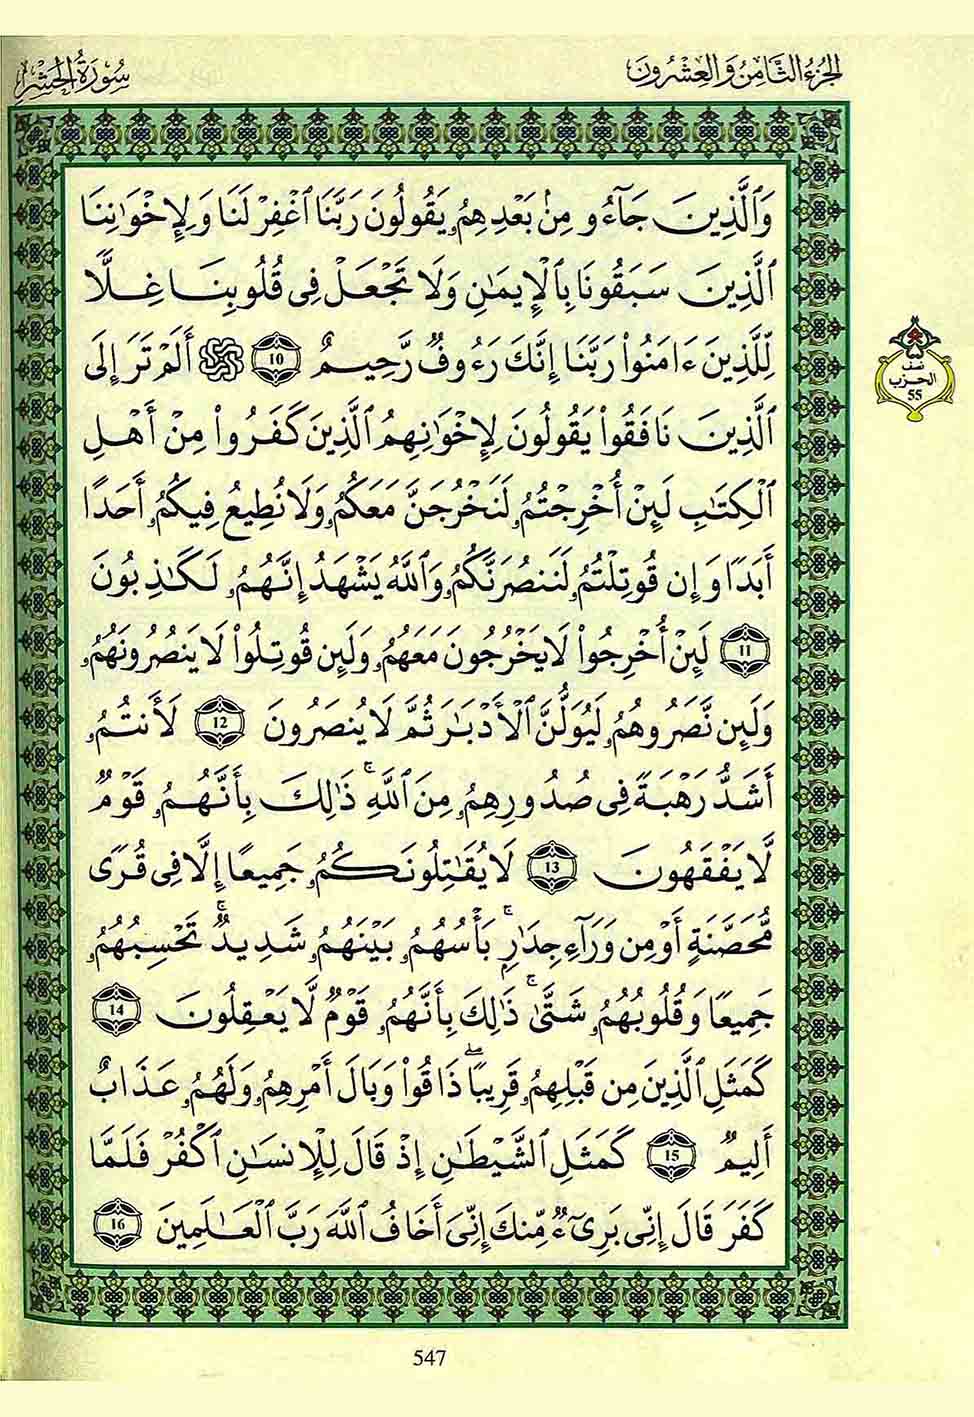 الجزء الثامن والعشرون
سورة الحشر
وَالَّذِينَ جَآءُو مِنۢ بَعْدِهِمُۥ يَقُولُونَ رَبَّنَا ٱغْفِرْ لَنَا وَلِإِخْوَٰنِنَا
ٱلَّذِينَ سَبَقُونَا بِٱلْإِيمَٰنِ وَلَا تَجْعَلْ فِى قُلُوبِنَا غِلًّا
لِّلَّذِينَ ءَامَنُوا۟ رَبَّنَآ إِنَّكَ رَءُوفٌ رَّحِيمٌ 10 أَلَمْ تَرَ إِلَى
ٱلَّذِينَ نَافَقُوا۟ يَقُولُونَ لِإِخْوَٰنِهِمُ ٱلَّذِينَ كَفَرُوا۟ مِنْ أَهْلِ
ٱلْكِتَٰبِ لَئِنْ أُخْرِجْتُمُۥ لَنَخْرُجَنَّ مَعَكُمُۥ وَلَا نُطِيعُ فِيكُمُۥ أَحَدًا
أَبَدًا وَإِن قُوتِلْتُمُۥ لَنَنصُرَنَّكُمُۥ وَٱللَّهُ يَشْهَدُ إِنَّهُمُۥ لَكَٰذِبُونَ
11 لَئِنْ أُخْرِجُوا۟ لَا يَخْرُجُونَ مَعَهُمُۥ وَلَئِن قُوتِلُوا۟ لَا يَنصُرُونَهُمُۥ
وَلَئِن نَّصَرُوهُمُۥ لَيُوَلُّنَّ ٱلْأَدْبَٰرَ ثُمَّ لَا يُنصَرُونَ 12 لَأَنتُمُۥ
أَشَدُّ رَهْبَةً فِى صُدُورِهِمُۥ مِنَ ٱللَّهِ ۚ ذَٰلِكَ بِأَنَّهُمُۥ قَوْمٌ
لَّا يَفْقَهُونَ 13 لَا يُقَٰتِلُونَكُمُۥ جَمِيعًا إِلَّا فِى قُرًى
مُّحَصَّنَةٍ أَوْ مِن وَرَآءِ جِدَارٍ ۚ بَأْسُهُمُۥ بَيْنَهُمُۥ شَدِيدٌ ۚ تَحْسِبُهُمُۥ
جَمِيعًا وَقُلُوبُهُمُۥ شَتَّىٰ ۚ ذَٰلِكَ بِأَنَّهُمُۥ قَوْمٌ لَّا يَعْقِلُونَ 14
كَمَثَلِ ٱلَّذِينَ مِن قَبْلِهِمُۥ قَرِيبًا ۖ ذَاقُوا۟ وَبَالَ أَمْرِهِمُۥ وَلَهُمُۥ عَذَابٌ
أَلِيمٌ 15 كَمَثَلِ ٱلشَّيْطَٰنِ إِذْ قَالَ لِلْإِنسَٰنِ ٱكْفُرْ فَلَمَّا
كَفَرَ قَالَ إِنِّى بَرِىٓءٌ مِّنكَ إِنِّىَ أَخَافُ ٱللَّهَ رَبَّ ٱلْعَٰلَمِينَ 16
نصف
الحزب
55
547